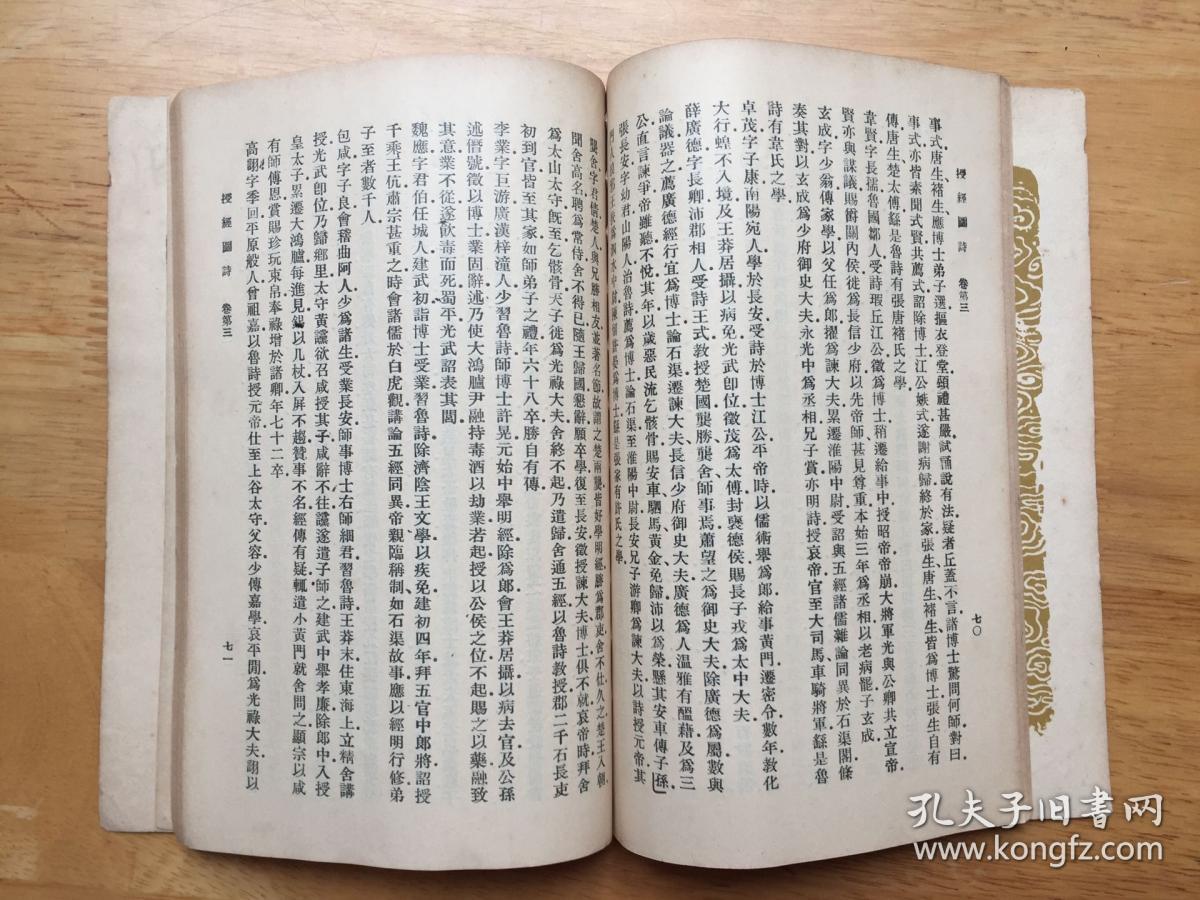 授經圖詩 卷第三
七〇
事式唐生褚生應博士弟子選摳衣登堂頌禮甚嚴試誦說有法疑者丘蓋不言諸博士驚問何師對曰
事式亦皆素聞式賢共薦式詔除博士江公嫉式遂謝病歸終於家張生唐生褚生皆爲博士張生自有
傳唐生楚太傅繇是魯詩有張唐褚氏之學
韋賢字長孺魯國鄒人受詩瑕丘江公徵爲博士稍遷給事中授昭帝帝崩大將軍光與公卿共立宣帝
賢亦與謀議賜爵關內侯徙爲長信少府以先帝師甚見尊重本始三年爲丞相以老病罷子玄成
玄成字少翁傳家學以父任爲郎擢爲諫大夫累遷淮陽中尉受詔與五經諸儒雜論同異於石渠閣條
奏其對以玄成爲少府御史大夫永光中爲丞相兄子賞亦明詩授哀帝官至大司馬車騎將軍繇是魯
詩有韋氏之學
卓茂字子康南陽宛人學於長安受詩於博士江公平帝時以儒術舉爲郎給事黃門遷密令數年教化
大行蝗不入境及王莽居攝以病免光武卽位徵茂爲太傅封褒德侯賜長子戎爲太中大夫
薛廣德字長卿沛郡相人受詩王式教授楚國龔勝龔舍師事焉蕭望之爲御史大夫除廣德爲屬數與
論議器之薦廣德經行宜爲博士論石渠遷諫大夫長信少府御史大夫廣德爲人溫雅有醞藉及爲三
公直言諫爭帝雖聽不悅其年以歲惡民流乞骸骨賜安車駟馬黃金免歸沛以爲榮懸其安車傳子孫
張長安字幼君山陽人治魯詩薦爲博士論石渠至淮陽中尉長安兄子游卿爲諫大夫以詩授元帝其
爲博士繇是張家有許氏之學
龔舍字君倩楚人與兄勝相友並著名節故謂之楚兩龔皆好學明經勝爲郡吏舍不仕久之楚王入朝
聞舍高名聘爲常侍舍不得已隨王歸國懇辭願卒學復至長安徵授諫大夫博士俱不就哀帝時拜舍
爲太山太守旣至乞骸骨天子徙爲光祿大夫舍終不起乃遣歸舍通五經以魯詩教授郡二千石長吏
初到官皆至其家如師弟子之禮年六十八卒勝自有傳
李業字巨游廣漢梓潼人少習魯詩師博士許晃元始中舉明經除爲郎會王莽居攝以病去官及公孫
述僭號徵以博士業固辭述乃使大鴻臚尹融持毒酒以劫業若起授以公侯之位不起賜之以藥融致
其意業不從遂飲毒而死蜀平光武詔表其閭
魏應字君伯任城人建武初詣博士受業習魯詩除濟陰王文學以疾免建初四年拜五官中郎將詔授
千乘王伉肅宗甚重之時會諸儒於白虎觀講論五經同異帝親臨稱制如石渠故事應以經明行修弟
子至者數千人
包咸字子良會稽曲阿人少爲諸生受業長安師事博士右師細君習魯詩王莽末住東海上立精舍講
授光武卽位乃歸鄉里太守黃讜欲召咸授其子咸辭不往讜遂遣子師之建武中舉孝廉除郎中入授
皇太子累遷大鴻臚每進見錫以几杖入屏不趨贊事不名經傳有疑輒遣小黃門就舍問之顯宗以咸
有師傅恩賞賜珍玩束帛奉祿增於諸卿年七十二卒
高詡字季回平原般人曾祖嘉以魯詩授元帝仕至上谷太守父容少傳嘉學哀平間爲光祿大夫詡以
授經圖詩 卷第三
七一
孔夫子旧书网
www.kongfz.com